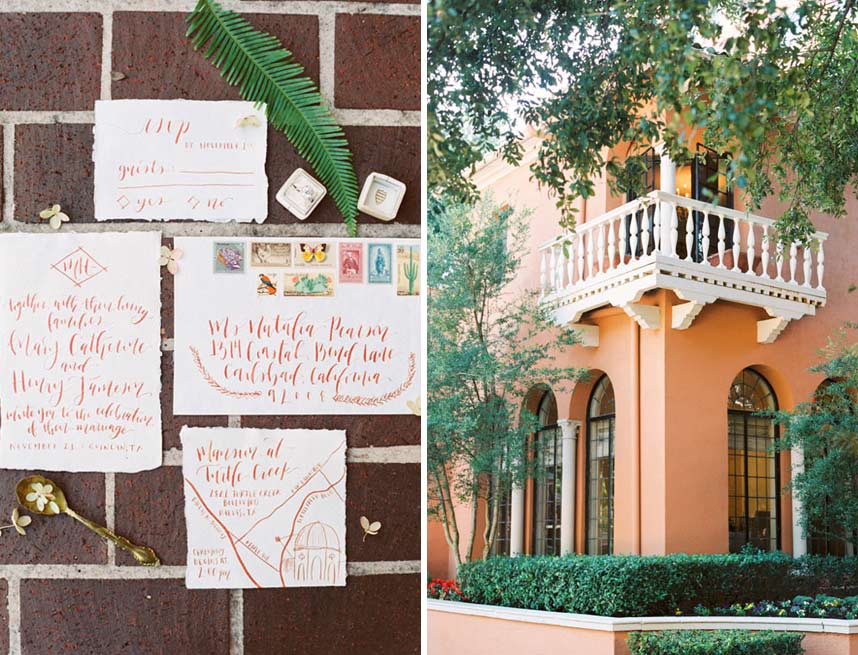 rsvp
by november 1st
guests
yes no
MH
together with their loving
families
Mary Catherine and
Henry Jameson
invite you to the celebration
of their marriage
november 23
Ms Natalia Pearson
1314 Coastal Bend Lane
Carlsbad, California
Mansion at
Turtle Creek
2821 Turtle Creek
Boulevard
Dallas, TX
ceremony
begins at
2:00 pm